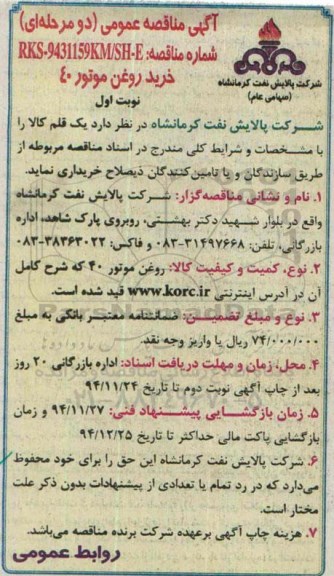 آگهی مناقصه عمومی (دو مرحله‌ای)
شماره مناقصه: RKS-9431159KM/SH-E
خرید روغن موتور ۴۰
شرکت پالایش نفت کرمانشاه
(سهامی عام)
نوبت اول
شرکت پالایش نفت کرمانشاه در نظر دارد یک قلم کالا را
با مشخصات و شرایط کلی مندرج در اسناد مناقصه مربوطه از
طریق سازندگان و یا تامین‌کنندگان ذیصلاح خریداری نماید.
۱. نام و نشانی مناقصه‌گزار: شرکت پالایش نفت کرمانشاه
واقع در بلوار شهید دکتر بهشتی، روبروی پارک شاهد، اداره
بازرگانی، تلفن: ۳۱۴۹۷۶۶۸-۰۸۳ و فاکس: ۳۸۳۶۳۰۲۲-۰۸۳
۲. نوع، کمیت و کیفیت کالا: روغن موتور ۴۰ که شرح کامل
آن در آدرس اینترنتی www.korc.ir قید شده است.
۳. نوع و مبلغ تضمین: ضمانتنامه معتبر بانکی به مبلغ
۷۴/۰۰۰/۰۰۰ ریال یا واریز وجه نقد.
۴. محل، زمان و مهلت دریافت اسناد: اداره بازرگانی ۲۰ روز
بعد از چاپ آگهی نوبت دوم تا تاریخ ۹۴/۱۱/۲۴
۵. زمان بازگشایی پیشنهاد فنی: ۹۴/۱۱/۲۷ و زمان
بازگشایی پاکت مالی حداکثر تا تاریخ ۹۴/۱۲/۲۵
۶. شرکت پالایش نفت کرمانشاه این حق را برای خود محفوظ
می‌دارد که در رد تمام یا تعدادی از پیشنهادات بدون ذکر علت
مختار است.
۷. هزینه چاپ آگهی برعهده شرکت برنده مناقصه می‌باشد.
روابط عمومی